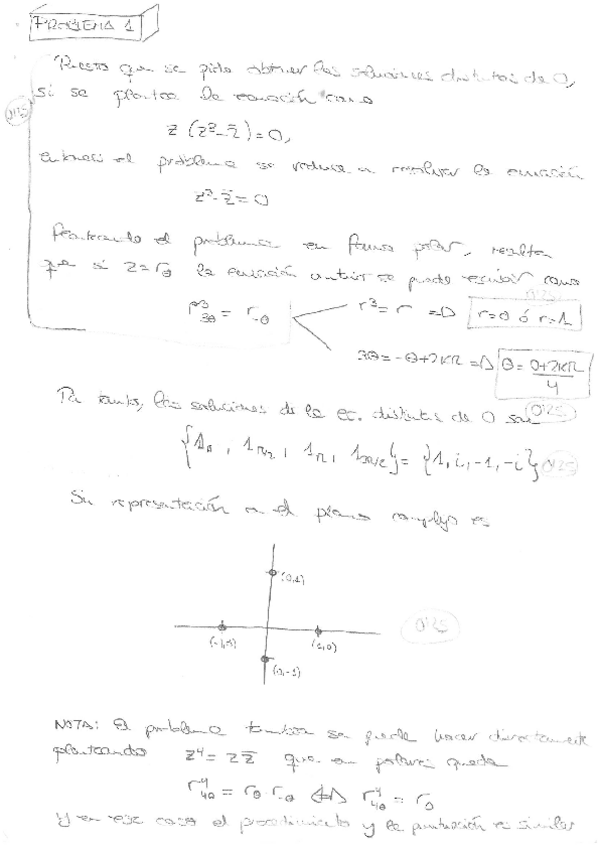 PROBLEMA 1
Puesto que se pide obtener las soluciones distintas de 0,
si se plantea la ecuación como
0'25
z (z³-z̄)=0,
entonces el problema se reduce a resolver la ecuación
z³-z̄=0
Planteando el problema en forma polar, resulta
que si z=r_θ la ecuación anterior se puede escribir como
0'25
r³_3θ = r_-θ
r³=r ⇒ r=0 ó r=1
3θ=-θ+2kπ ⇒ θ= 0+2kπ/4
Por tanto, las soluciones de la ec. distintas de 0 son
0'25
{1_0, 1_π/2, 1_π, 1_3π/2}={1,i,-1,-i}
0'25
Su representación en el plano complejo es
(0,1)
(-1,0)
(1,0)
0'25
(0,-1)
NOTA: El problema también se puede hacer directamente
planteando z⁴=z z̄ que en polares queda
r⁴_4θ = r_θ·r_-θ ⇔ r⁴_4θ = r_0
Y en ese caso el procedimiento y la puntuación es similar